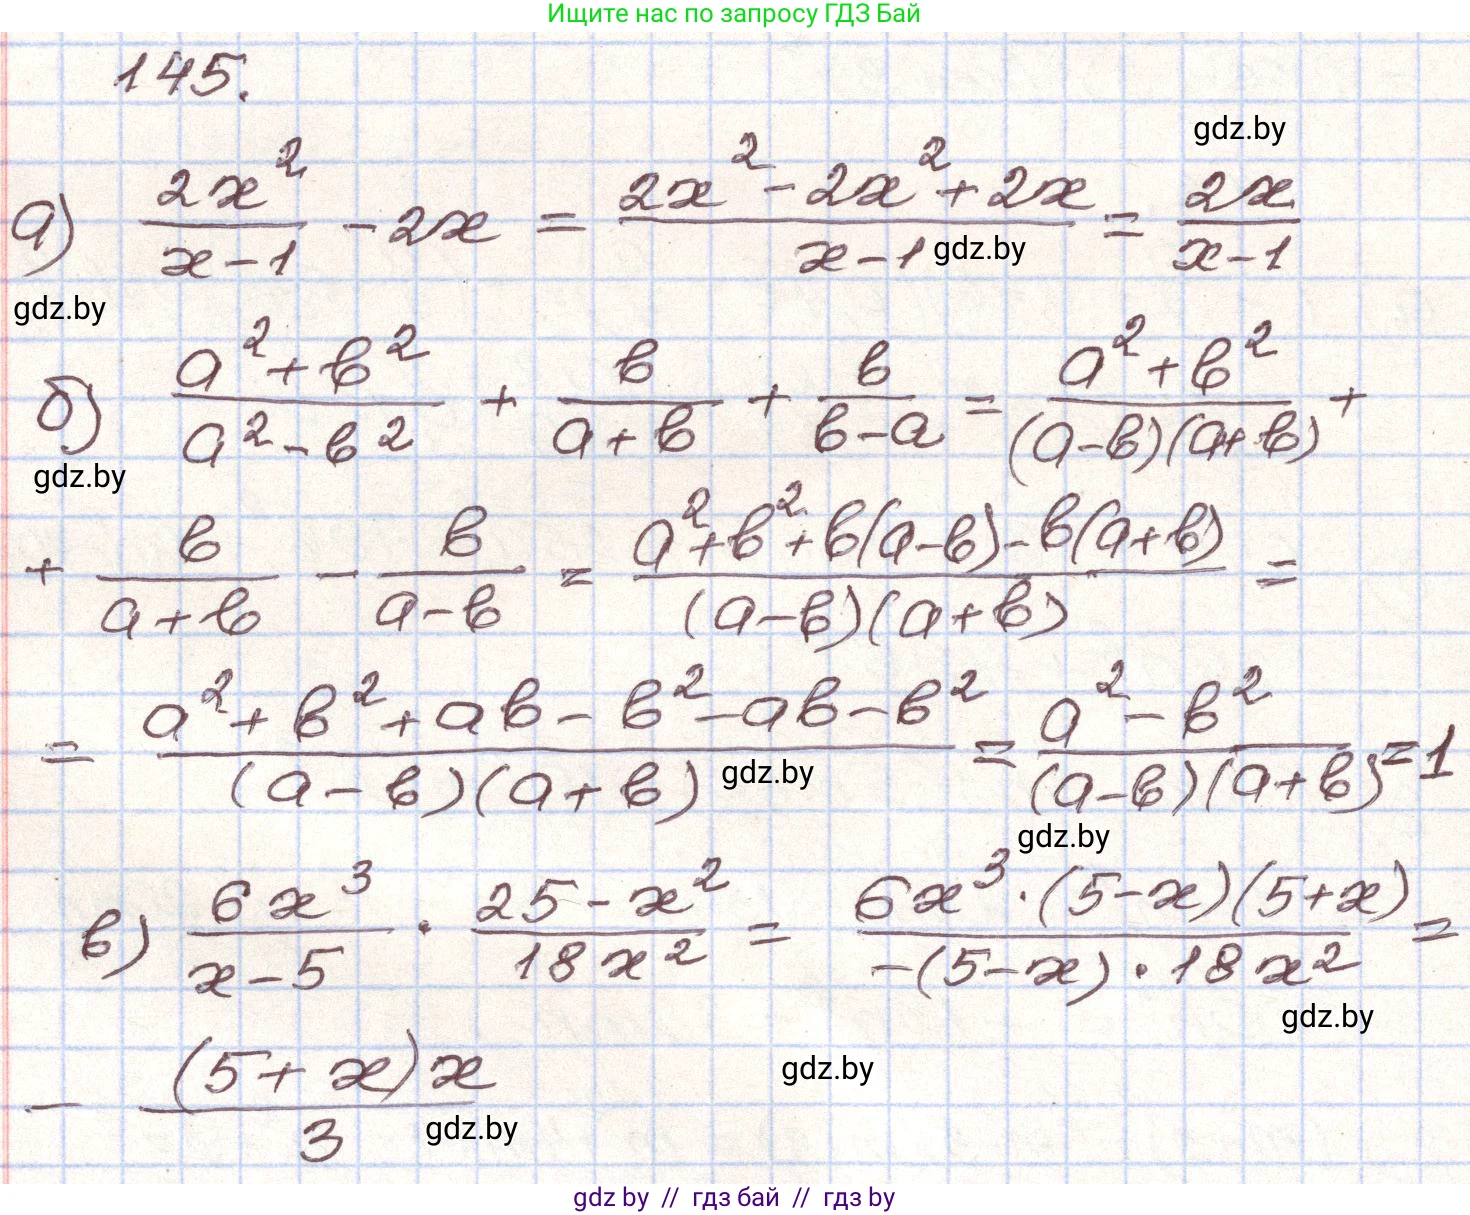 Ищите нас по запросу ГДЗ Бай
145.
gdz.by
а) 2x²/(x-1) - 2x = (2x² - 2x² + 2x)/(x-1) = 2x/(x-1)
gdz.by
gdz.by
б) (a²+в²)/(a²-в²) + в/(a+в) + в/(в-a) = (a²+в²)/((a-в)(a+в)) +
gdz.by
+ в/(a+в) - в/(a-в) = (a²+в²+в(a-в)-в(a+в))/((a-в)(a+в)) =
= (a²+в²+aв-в²-aв-в²)/((a-в)(a+в)) = (a²-в²)/((a-в)(a+в)) = 1
gdz.by
gdz.by
в) 6x³/(x-5) · (25-x²)/(18x²) = (6x³·(5-x)(5+x))/(-(5-x)·18x²) =
gdz.by
- ((5+x)x)/3
gdz.by
gdz.by
gdz by // гдз бай // гдз by